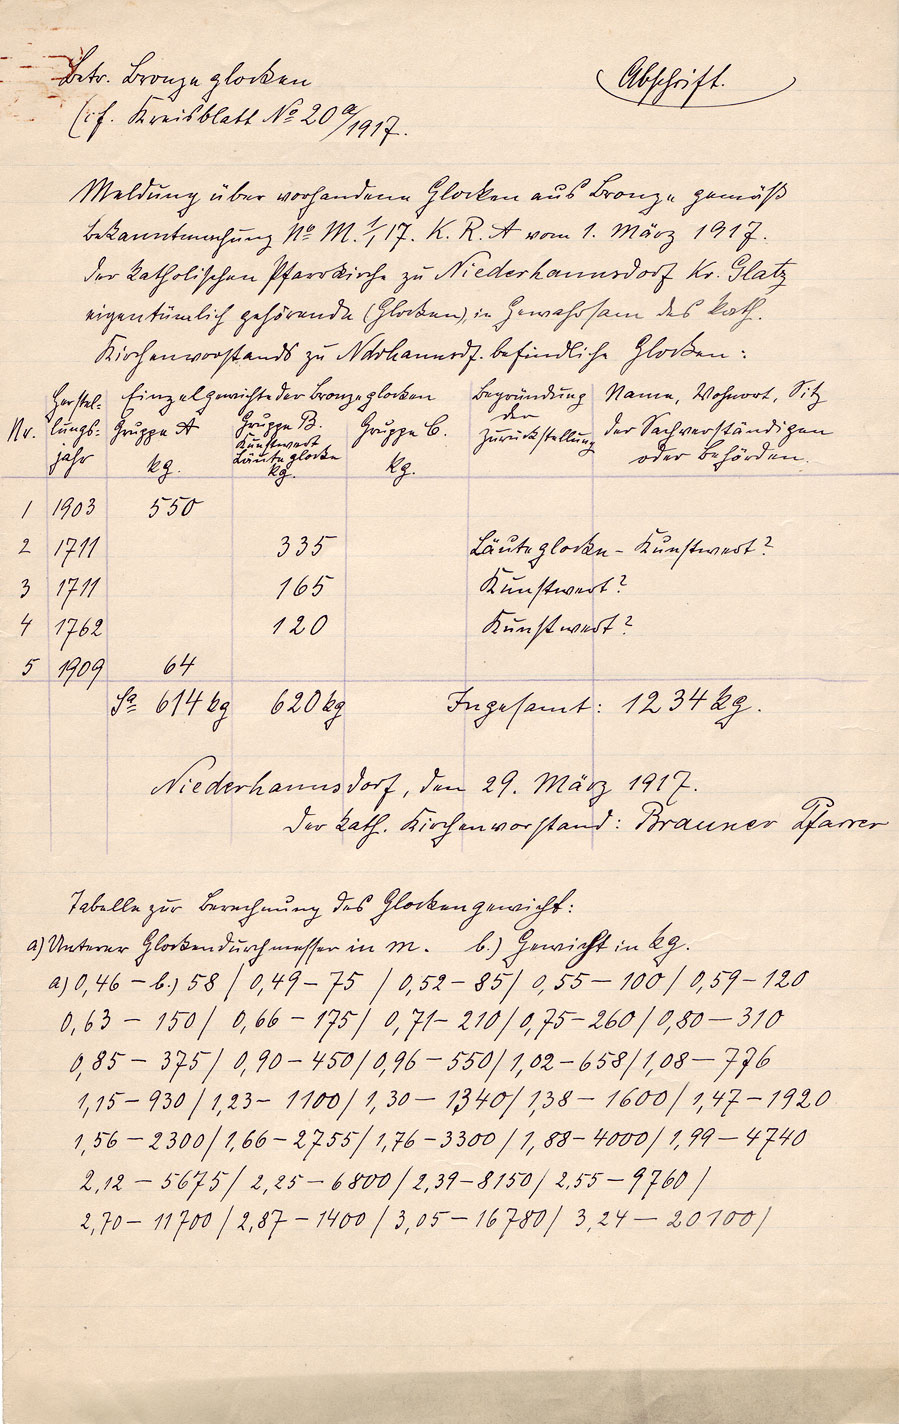 Betr. Bronzeglocken
Abschrift.
(cf. Kreisblatt No 20a/1917.
Meldung über vorhandene Glocken aus Bronze gemäß
Bekanntmachung No M. 1/1, 17. K. R. A vom 1. März 1917.
der katholischen Pfarrkirche zu Niederhannsdorf Kr. Glatz
eigentümlich gehörende (Glocken), in Gewahrsam des kath.
Kirchenvorstands zu Ndrhannsdf. befindliche Glocken:
Nr. | Herstel-lungs-jahr | Einzelgewichte der Bronzeglocken | Begründung der Zurückstellung | Name, Wohnort, Sitz der Sachverständigen oder Behörden.
Gruppe A kg. | Gruppe B. Kunstwert Läuteglocke kg. | Gruppe C. kg.
1 1903 550
2 1711 335 Läuteglocke - Kunstwert?
3 1711 165 Kunstwert?
4 1762 120 Kunstwert?
5 1909 64
Sa 614 kg 620 kg Ingesamt: 1234 kg.
Niederhannsdorf, den 29. März 1917.
Der kath. Kirchenvorstand: Brauner Pfarrer
Tabelle zur Berechnung des Glockengewicht:
a) Unterer Glockendurchmesser in m. b.) Gewicht in kg.
a) 0,46 - b.) 58 / 0,49 - 75 / 0,52 - 85 / 0,55 - 100 / 0,59 - 120
0,63 - 150 / 0,66 - 175 / 0,71 - 210 / 0,75 - 260 / 0,80 - 310
0,85 - 375 / 0,90 - 450 / 0,96 - 550 / 1,02 - 658 / 1,08 - 776
1,15 - 930 / 1,23 - 1100 / 1,30 - 1340 / 1,38 - 1600 / 1,47 - 1920
1,56 - 2300 / 1,66 - 2755 / 1,76 - 3300 / 1,88 - 4000 / 1,99 - 4740
2,12 - 5675 / 2,25 - 6800 / 2,39 - 8150 / 2,55 - 9760 /
2,70 - 11700 / 2,87 - 1400 / 3,05 - 16780 / 3,24 - 20100 /